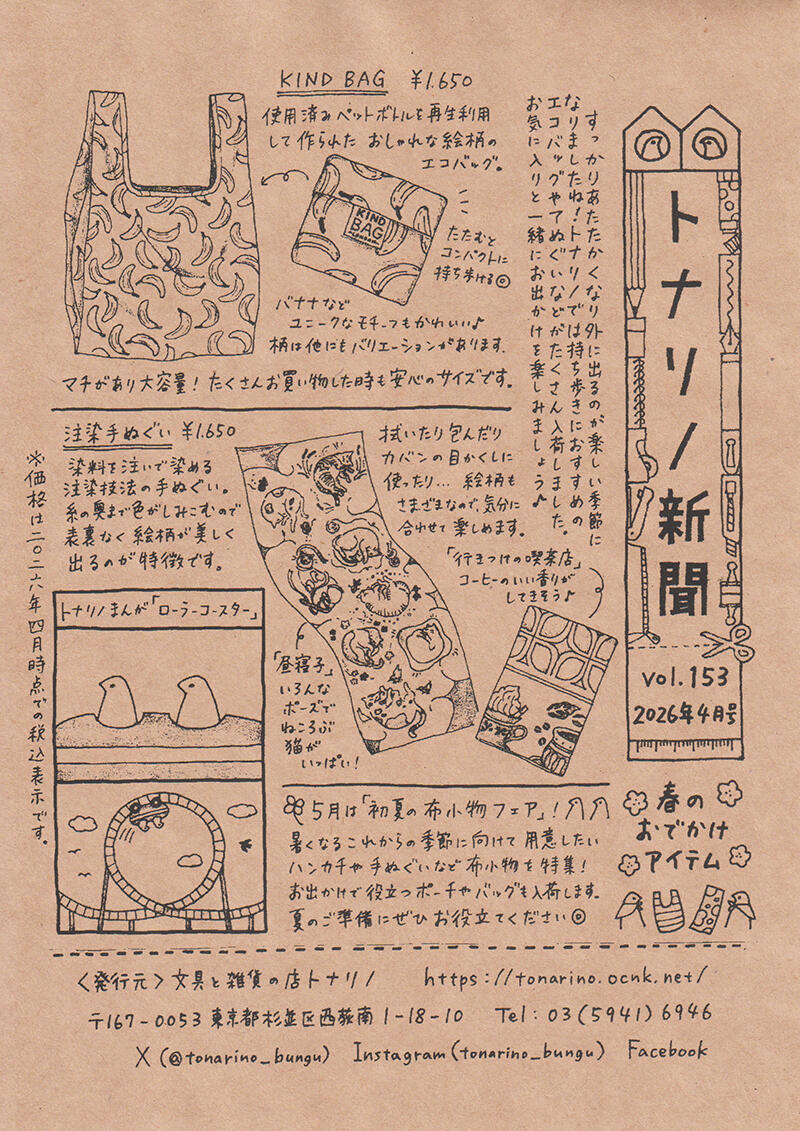 トナリノ新聞
vol.153
2026年4月号
春の
おでかけ
アイテム
すっかりあたたかくなり外に出るのが楽しい季節に
なりましたね!トナリノでは持ち歩きにおすすめの
エコバッグやてぬぐいなどがたくさん入荷しました。
お気に入りと一緒にお出かけを楽しみましょう♪
KIND BAG ¥1.650
使用済みペットボトルを再生利用
して作られた おしゃれな絵柄の
エコバッグ。
KIND
BAG
たたむと
コンパクトに
持ち歩ける◎
バナナなど
ユニークなモチーフもかわいい♪
柄は他にもバリエーションがあります。
マチがあり大容量!たくさんお買い物した時も安心のサイズです。
注染手ぬぐい ¥1.650
染料を注いで染める
注染技法の手ぬぐい。
糸の奥まで色がしみこむので
表裏なく絵柄が美しく
出るのが特徴です。
拭いたり包んだり
カバンの目かくしに
使ったり... 絵柄も
さまざまなので、気分に
合わせて楽しめます。
「行きつけの喫茶店」
コーヒーのいい香りが
してきそう♪
「昼寝子」
いろんな
ポーズで
ねころぶ
猫が
いっぱい!
※価格は二〇二六年四月時点での税込表示です。
トナリノまんが「ローラーコースター」
5月は「初夏の布小物フェア」!
暑くなるこれからの季節に向けて用意したい
ハンカチや手ぬぐいなど布小物を特集!
お出かけで役立つポーチやバッグも入荷します。
夏のご準備にぜひお役立てください◎
<発行元>文具と雑貨の店トナリノ https://tonarino.ocnk.net/
〒167-0053 東京都杉並区西荻南1-18-10 Tel: 03(5941)6946
X (@tonarino_bungu) Instagram (tonarino_bungu) Facebook